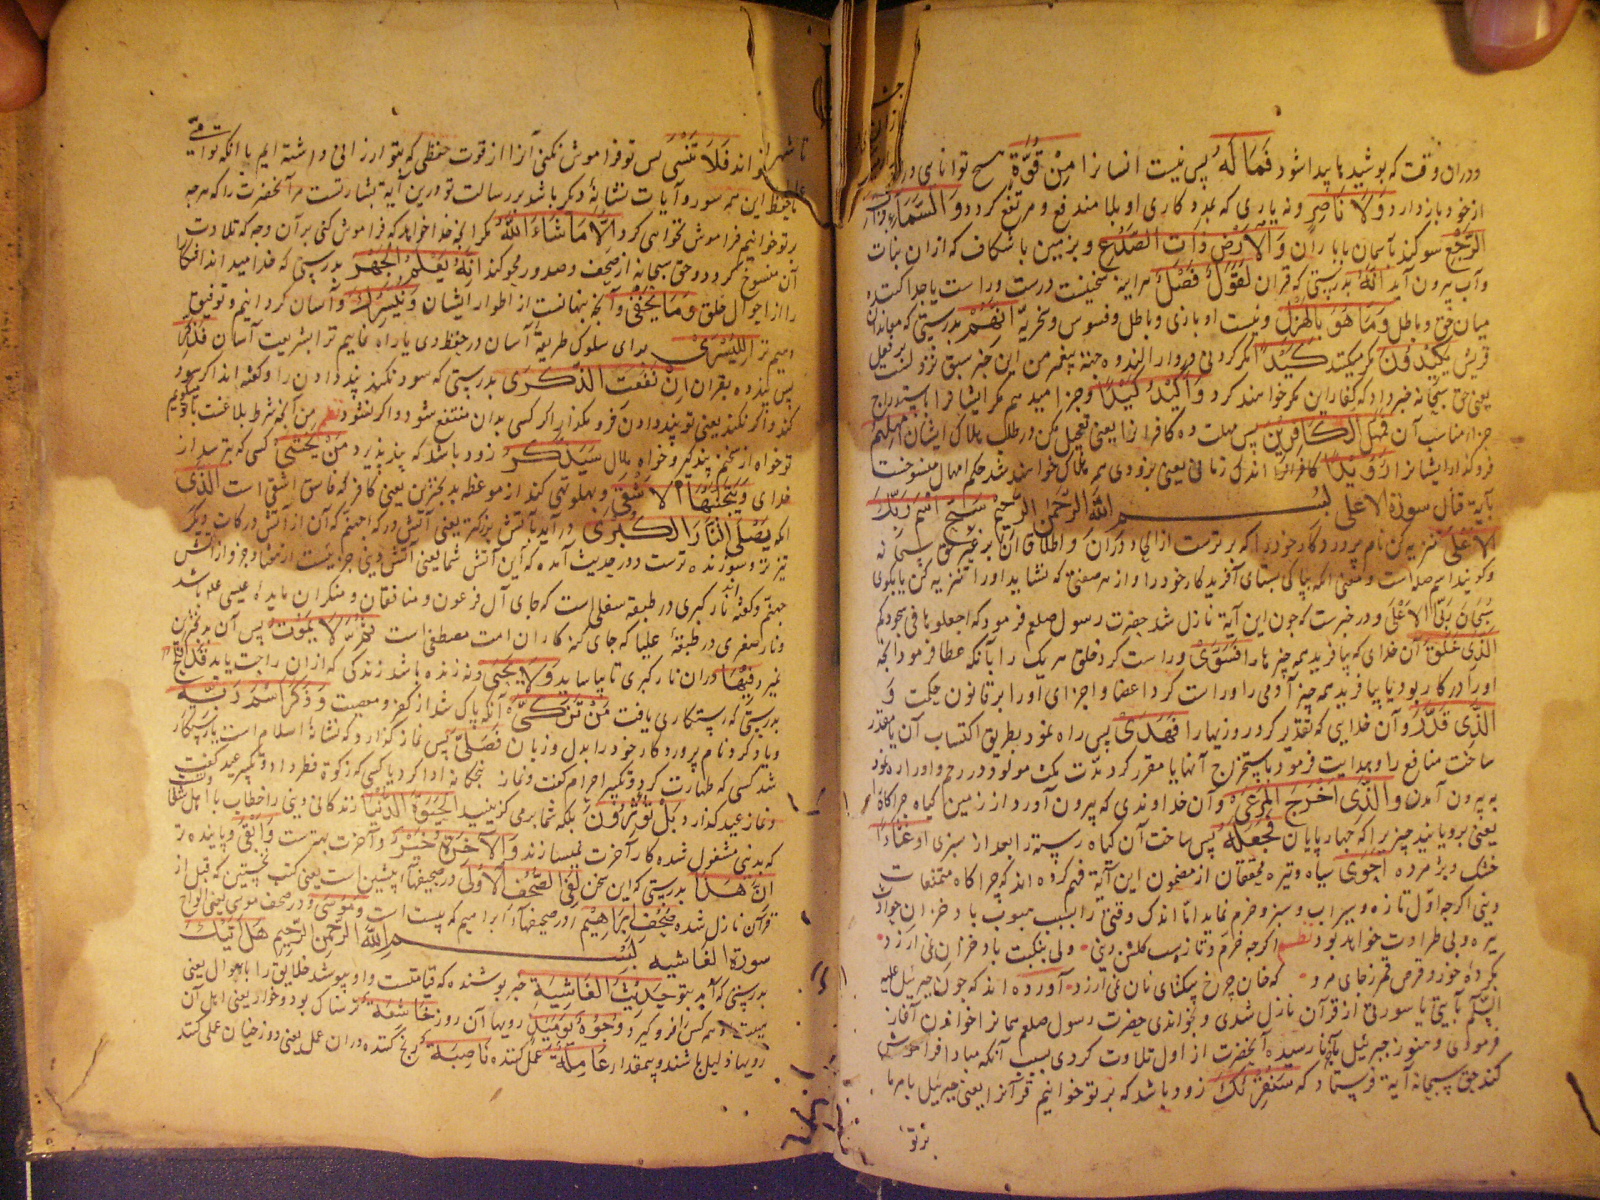 دران وقت که پوشیدها پیدا شود فَمَا لَهُ پس نیست انسان را مِنْ قُوَّةٍ هیچ توانایی که
از خود باز دارد وَلَا نَاصِرٍ و نه یاری که بمددکاری او بلا مندفع و مرتفع گردد وَالسَّمَاءِ ذَاتِ
الرَّجْعِ سوگند بآسمان با باران وَالْأَرْضِ ذَاتِ الصَّدْعِ و بزمین با شکاف که ازان نبات
و آب بیرون آید إِنَّهُ بدرستی که قرآن لَقَوْلٌ فَصْلٌ هر آینه سخنیست درست و راست یا جدا کننده
میان حق و باطل وَمَا هُوَ بِالْهَزْلِ و نیست او بازی و باطل و فسوس و سخریه إِنَّهُمْ بدرستی که معاندان
قریش یَکِیدُونَ مکر میکنند کَیْدًا مکر کردنی
یعنی حق سبحانه خبر داد که کفار این مکر خواهند کرد وَأَكِيدُ كَيْدًا و جزا میدهم مکر ایشانرا باستدراج
جزاء مناسب آن فَمَهِّلِ الْكَافِرِينَ پس مهلت ده کافرانرا یعنی تعجیل مکن در طلب هلاک ایشان أَمْهِلْهُمْ
فرو گذار ایشانرا رُوَيْدًا اندک زمانی یعنی بزودی همه هلاک خواهند شد حکم امهال منسوخست
بآیة قتال سورة الاعلی بسم الله الرحمن الرحیم سَبِّحِ اسْمَ رَبِّكَ
الْأَعْلَى تنزیه کن نام پروردگار خود را که برترست
و گویند اسم صله است و معنی آنکه بپاکی بستای آفریدگار خود را و از هر صفتی که نشاید او را تنزیه کن یا بگوی
سبحان ربی الاعلی و در خبرست که چون این آیة نازل شد حضرت رسول صلعم فرمود که اجعلوها فی سجودکم
الَّذِي خَلَقَ آن خدای که بیافرید همه چیزها را فَسَوَّى و راست کرد خلق هر یک را بآنکه عطا فرمود آنچه
او را در کار بود یا بیافرید همه چیز آدمی را و راست کرد اعضا و اجزای او را بر قانون حکمت وَ
الَّذِي قَدَّرَ و آن خدایی که تقدیر کرد روزیها را فَهَدَى پس راه نمود بطریق اکتساب آن یا مقدر
ساخت منافع را و هدایت فرمود باستخراج آنها یا مقرر کرد مدت مکث مولود در رحم و او را راه نمود
به بیرون آمدن وَالَّذِي أَخْرَجَ الْمَرْعَى و آن خداوندی که بیرون آورد از زمین گیاه چراگاه
یعنی برویانید چیزیرا که چهارپایان فَجَعَلَهُ پس ساخت آن گیاه رسته را بعد از سبزی او غُثَاءً
خشک و پژمرده أَحْوَى سیاه و تیره محققان از مضمون این آیة فهم کرده اند که چراگاه متمتعات
دنیا اگرچه اول تازه و سیراب و سبز و خرم نماید اما اندک وقتی را بسبب هبوب باد خزان حوادث
تیره و بی طراوت خواهد بود نظم اگرچه خرم و تازست گلشن دنیی ولی بنکبت باد خزان نمی ارزد
بگرده خور و قرص قمر ز جای مرو که خان چرخ بیکتای نان نمی ارزد آورده اند که چون جبرئیل علیه
السلام بآیتی یا سورتی از قرآن نازل شدی و بخواندی حضرت رسول صلعم همانرا خواندن آغاز
فرمودی و هنوز جبرئیل بآخر نارسیده آنحضرت از اول تلاوت کردی بسبب آنکه مبادا فراموش
کند حق سبحانه آیة فرستاد که سَنُقْرِئُكَ زود باشد که بر تو خوانیم قرآنرا یعنی جبرئیل بامر ما
بر تو
فَلَا تَنْسَى پس تو فراموش نکنی آنرا از قوت حفظی که بتو ارزانی داشته ایم با آنکه تو امی
حفظ این همه سور و آیات نشانهٔ دیگر باشد بر رسالت تو درین آیة بشارتست مر آنحضرت را که هر چه
بر تو خوانیم فراموش نخواهی کرد إِلَّا مَا شَاءَ اللَّهُ مگر آنچه خدا خواهد که فراموش کنی بر آن وجه که تلاوت
آن منسوخ گردد و حق سبحانه از صحف و صدور محو کند إِنَّهُ يَعْلَمُ الْجَهْرَ بدرستی که خدا میداند آشکارا
را از احوال خلق وَمَا يَخْفَى و آنچه پنهانست از اطوار ایشان وَنُيَسِّرُكَ و آسان گردانیم و توفیق
دهیم ترا لِلْيُسْرَى برای سلوک طریقهٔ آسان در حفظ وحی یا راه نماییم ترا بشریعت آسان فَذَكِّرْ
پس پند ده بقرآن إِنْ نَفَعَتِ الذِّكْرَى بدرستی که سود نکند پند دادن را و گفته اند اگر سود
کند و اگر نکند یعنی تو پند دادن فرو مگذار اگر کسی بدان منتفع شود و اگر نشود نظم من آنچه شرط بلاغست با تو میگویم
تو خواه از سخنم پند گیر و خواه ملال سَيَذَّكَّرُ زود باشد که پند پذیرد مَنْ يَخْشَى کسی که بترسد از
خدای وَيَتَجَنَّبُهَا الْأَشْقَى و پهلو تهی کند از موعظه بدبخترین یعنی کافر که فاسق اشقی است الَّذِي
آنکه يَصْلَى النَّارَ الْكُبْرَى در آید بآتش بزرگتر یعنی آتش درکهٔ جهنم که آن از آتش درکات دیگر
تیزتر و سوزنده ترست و در حدیث آمده که این آتش شما یعنی آتش دنیی جزئیست از هفتاد جزو از آتش
جهنم و گفته اند نار کبری در طبقهٔ سفلی است که جای آل فرعون و منافقان و منکران مایدهٔ عیسی علم باشد
و نار صغری در طبقهٔ علیا که جای گنه کاران امت مصطفی است ثُمَّ لَا يَمُوتُ پس آن بدبخترین
نمیرد فِيهَا دران نار کبری تا بیاساید وَلَا يَحْيَى و نه زنده باشد زندگی که ازان راحت یابد قَدْ أَفْلَحَ
بدرستی که رستگاری یافت مَنْ تَزَكَّى آنکه پاک شد از کفر و معصیت وَذَكَرَ اسْمَ رَبِّهِ
و یاد کرد نام پروردگار خود را بدل و زبان فَصَلَّى پس نماز گزارد که نشانهٔ اسلام است یا رستگار
شد کسی که طهارت کرد و تکبیر احرام گفت و نماز پنجگانه ادا کرد یا کسی که زکوة فطر داد و تکبیر عید گفت
و نماز عید گذارد بَلْ تُؤْثِرُونَ بلکه شما بر می گزینید الْحَيَوةَ الدُّنْيَا زندگانی دنیی را خطاب با اهل شقا
که بدنیی مشغول شده کار آخرت نمیسازند وَالْآخِرَةُ خَيْرٌ و آخرت بهترست وَأَبْقَى و پاینده تر
إِنَّ هَذَا بدرستی که این سخن لَفِي الصُّحُفِ الْأُولَى در صحیفهای پیشین است یعنی کتب نخستین که قبل از
قرآن نازل شده صُحُفِ إِبْرَاهِيمَ در صحیفهای ابراهیم که بیست است وَمُوسَى و در صحف موسی یعنی الواح
سورة الغاشیه بسم الله الرحمن الرحیم هَلْ أَتَيكَ
بدرستی که آمد بتو حَدِيثُ الْغَاشِيَةِ خبر پوشنده که قیامتست و او بپوشد خلایق را باهوال یعنی
هیبت او همه کس را فرو گیرد وُجُوهٌ يَوْمَئِذٍ رویها آن روز خَاشِعَةٌ ترسناک بود و خوار یعنی اهل آن
رویها ذلیل باشند و بیمقدار عَامِلَةٌ عمل کننده نَاصِبَةٌ رنج کننده دران عمل یعنی دوزخیان عملی کنند